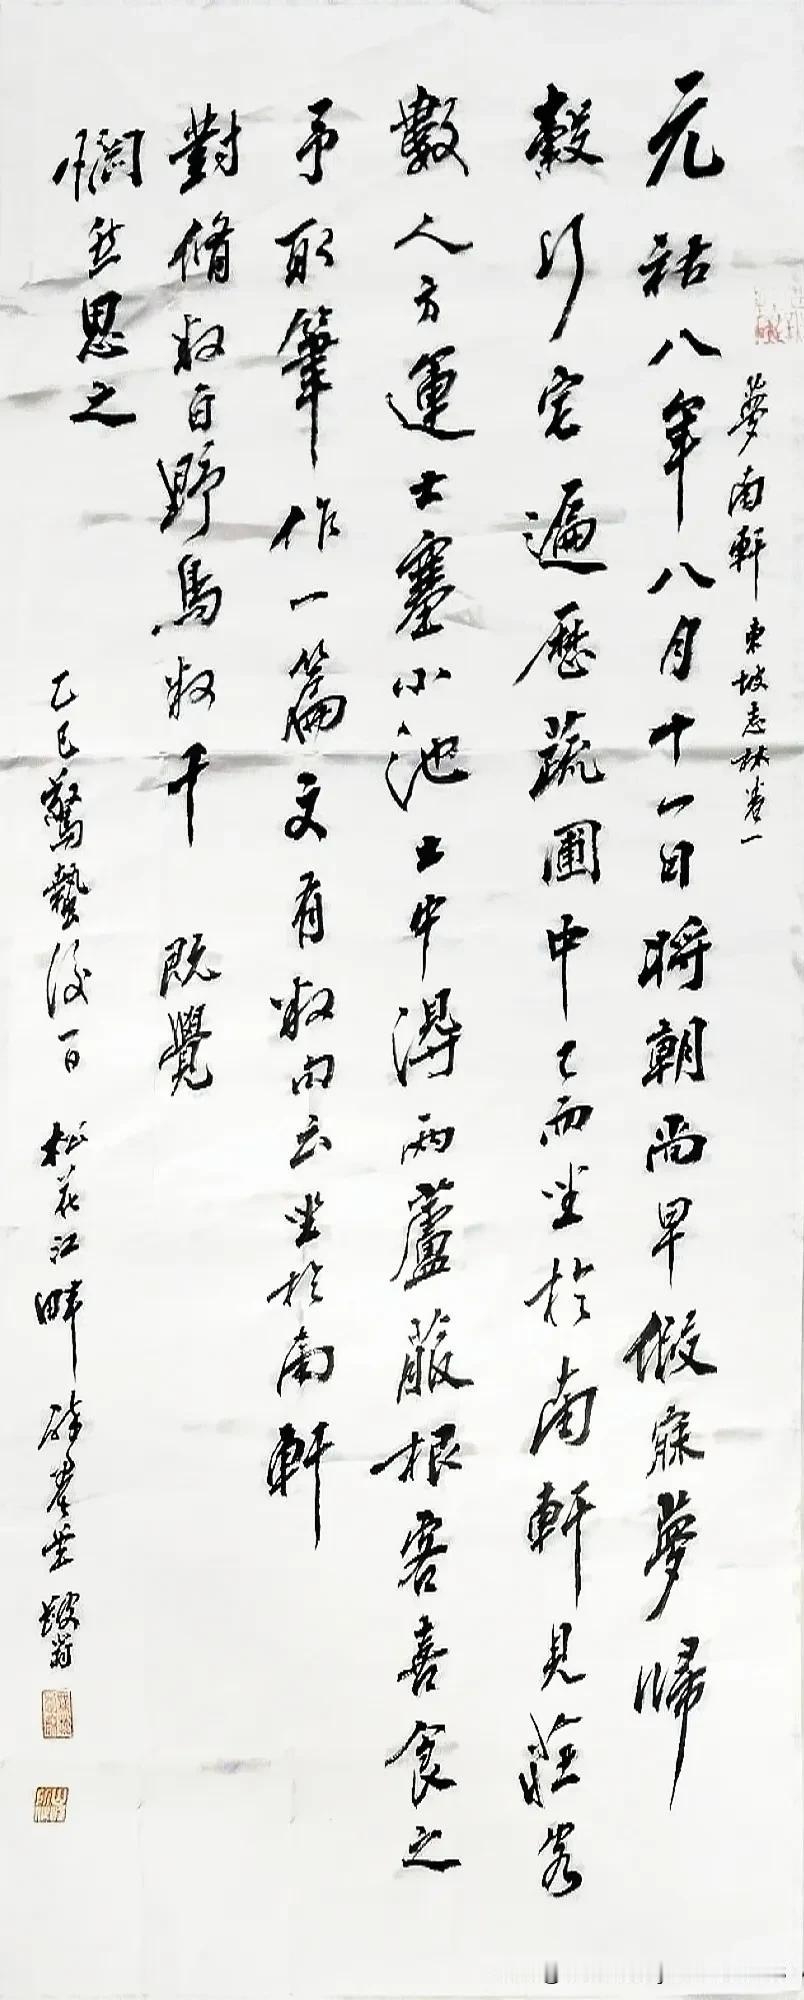 夢南軒 東坡志林卷一
元祐八年八月十一日將朝尚早假寐夢歸
縠行宅遍歷蔬圃中已而坐於南軒見莊客
數人方運土塞小池土中得兩蘆菔根客喜食之
予取筆作一篇文有數句云坐於南軒
對脩數百野鳥數千 既覺
惘然思之
乙巳驚蟄後一日 松花江畔 堂 翁